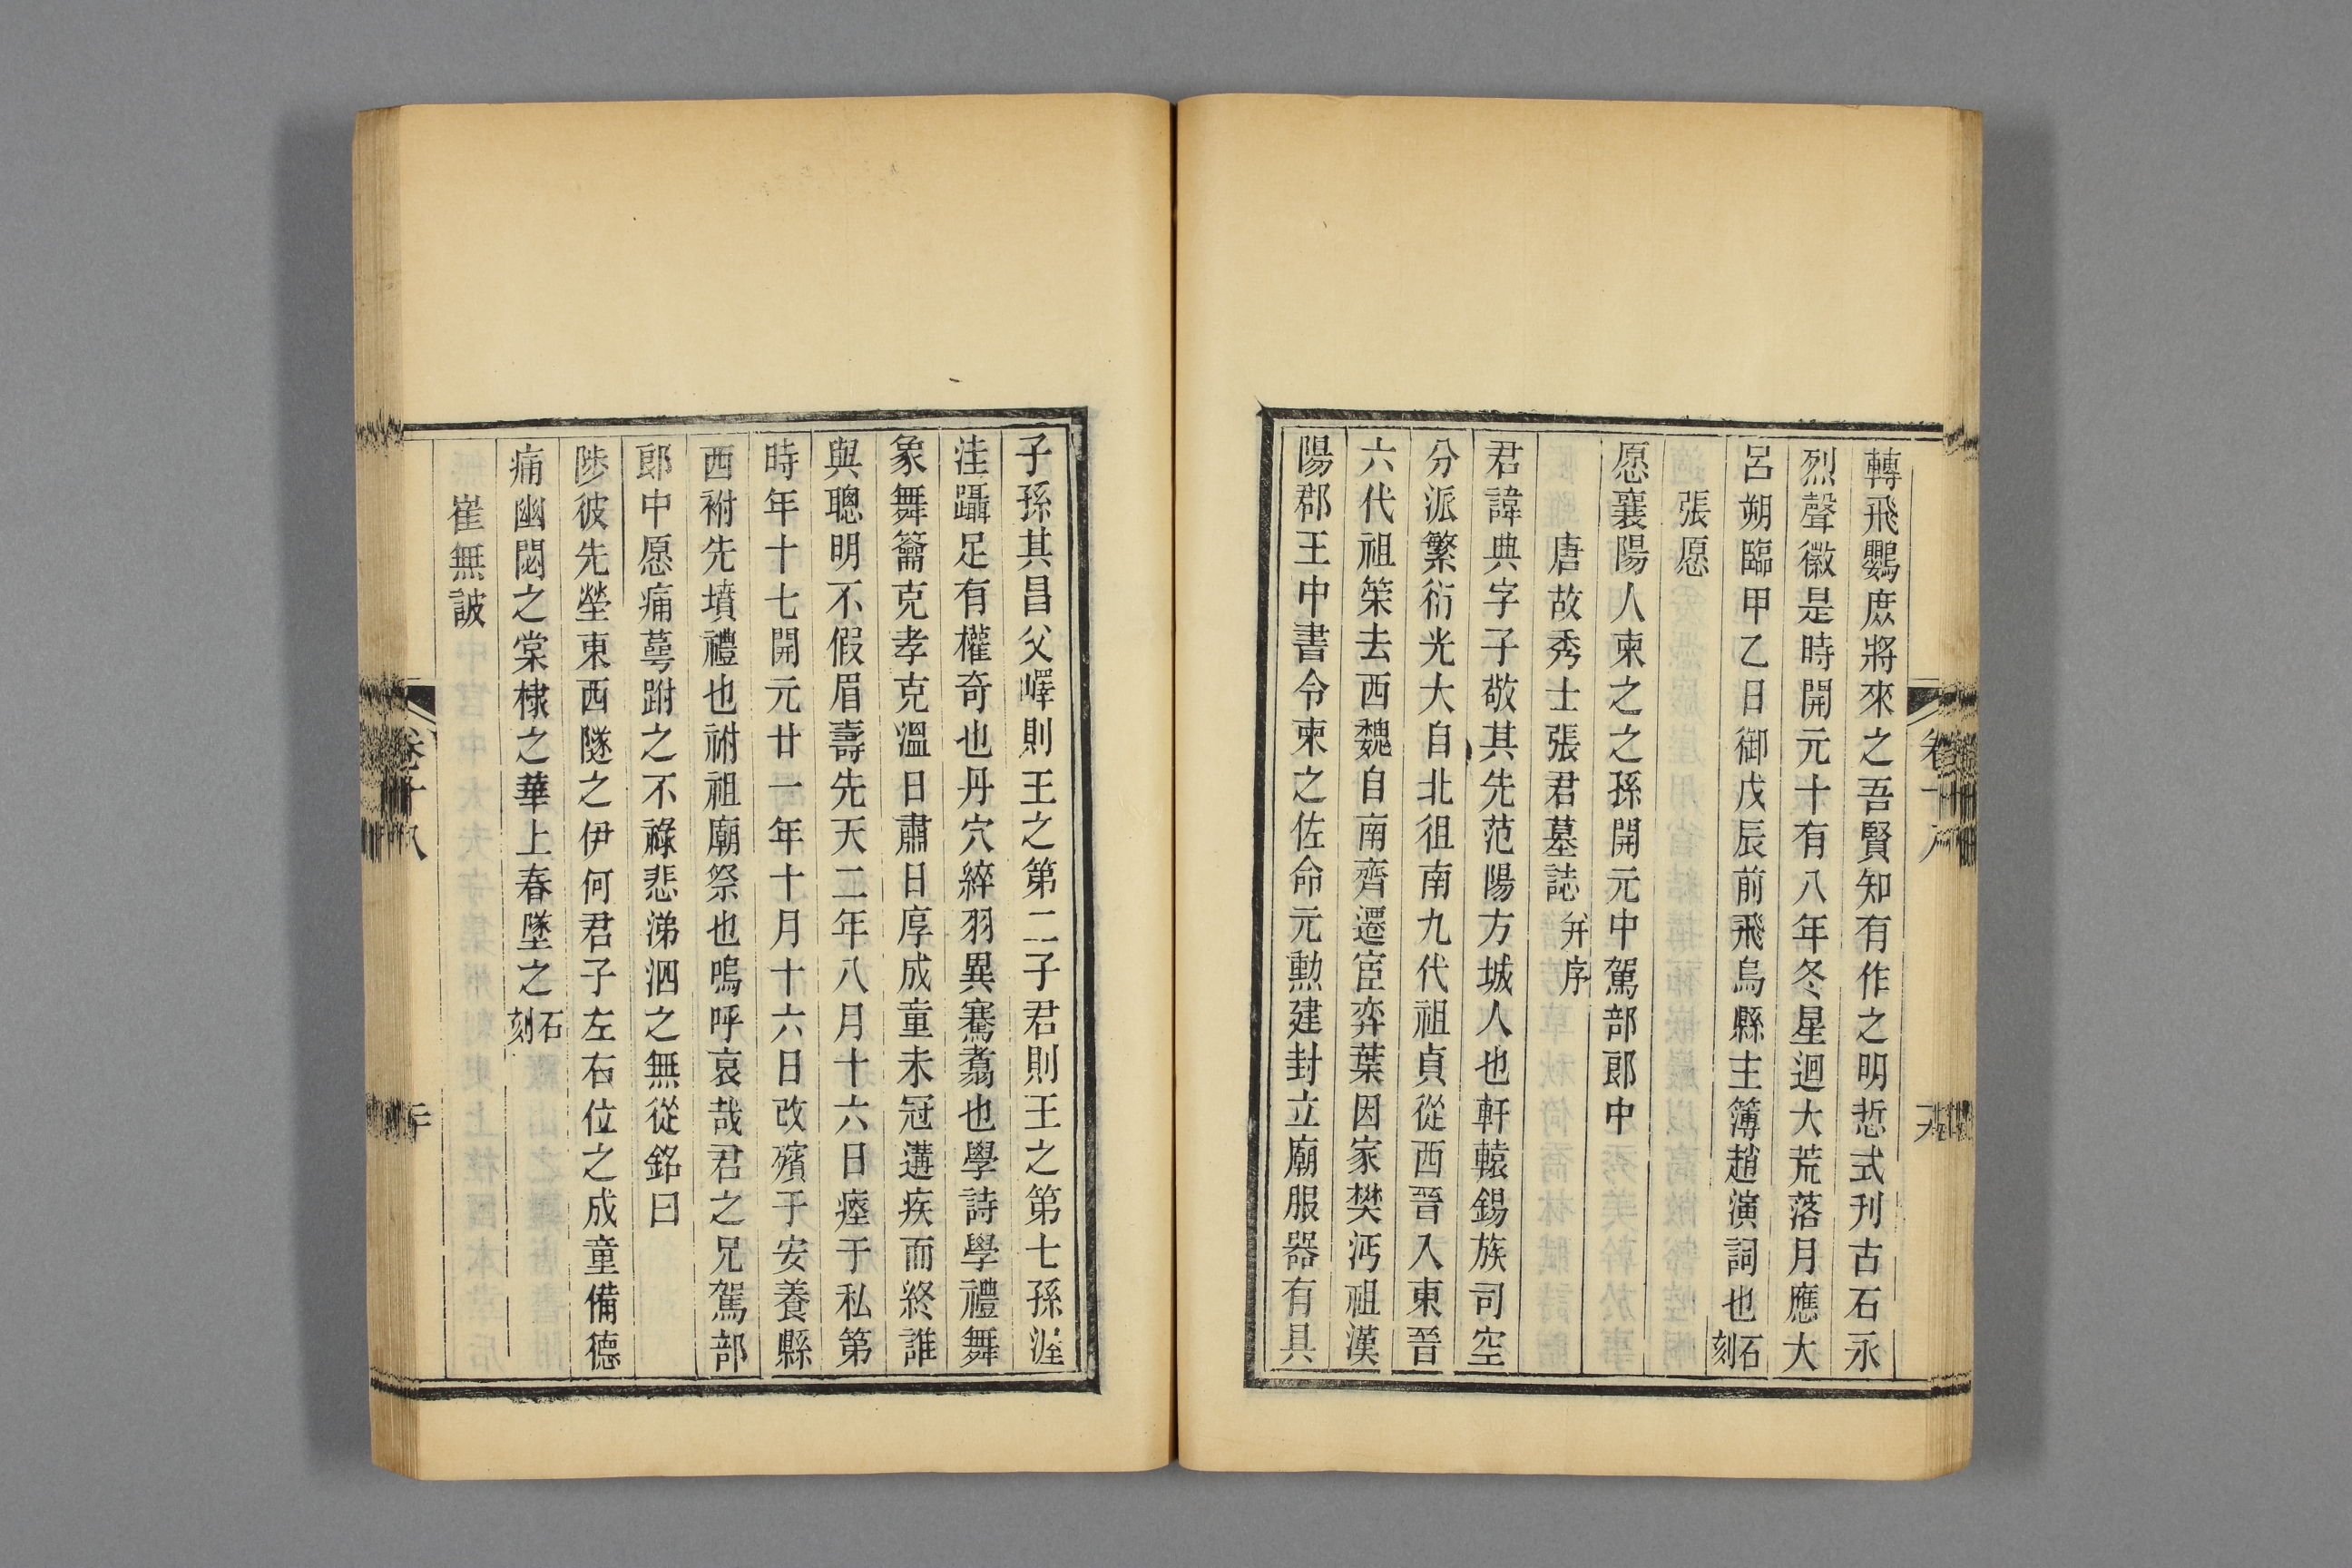 轉飛鸚庶將來之吾賢知有作之明悊式刊古石永
烈聲徽是時開元十有八年冬星迴大荒落月應大
呂朔臨甲乙日御戊辰前飛烏縣主簿趙演詞也石刻
張愿
愿襄陽人柬之之孫開元中駕部郎中
唐故秀士張君墓誌并序
君諱典字子敬其先范陽方城人也軒轅錫族司空
分派繁衍光大自北徂南九代祖貞從西晉入東晉
六代祖䇿去西魏自南齊遷宦弈葉因家樊沔祖漢
陽郡王中書令柬之佐命元勳建封立廟服器有具
子孫其昌父嶧則王之第二子君則王之第七孫渥
洼躡足有權奇也丹穴綷羽異騫翥也學詩學禮舞
象舞籥克孝克溫日肅日厚成童未冠遘疾而終誰
與聰明不假眉壽先天二年八月十六日瘞于私第
時年十七開元廿一年十月十六日改殯于安養縣
西祔先墳禮也祔祖廟祭也嗚呼哀哉君之兄駕部
郎中愿痛蕚跗之不祿悲涕泗之無從銘曰
陟彼先塋東西隧之伊何君子左右位之成童備德
痛幽閟之棠棣之華上春墜之石刻
崔無詖
卷十八